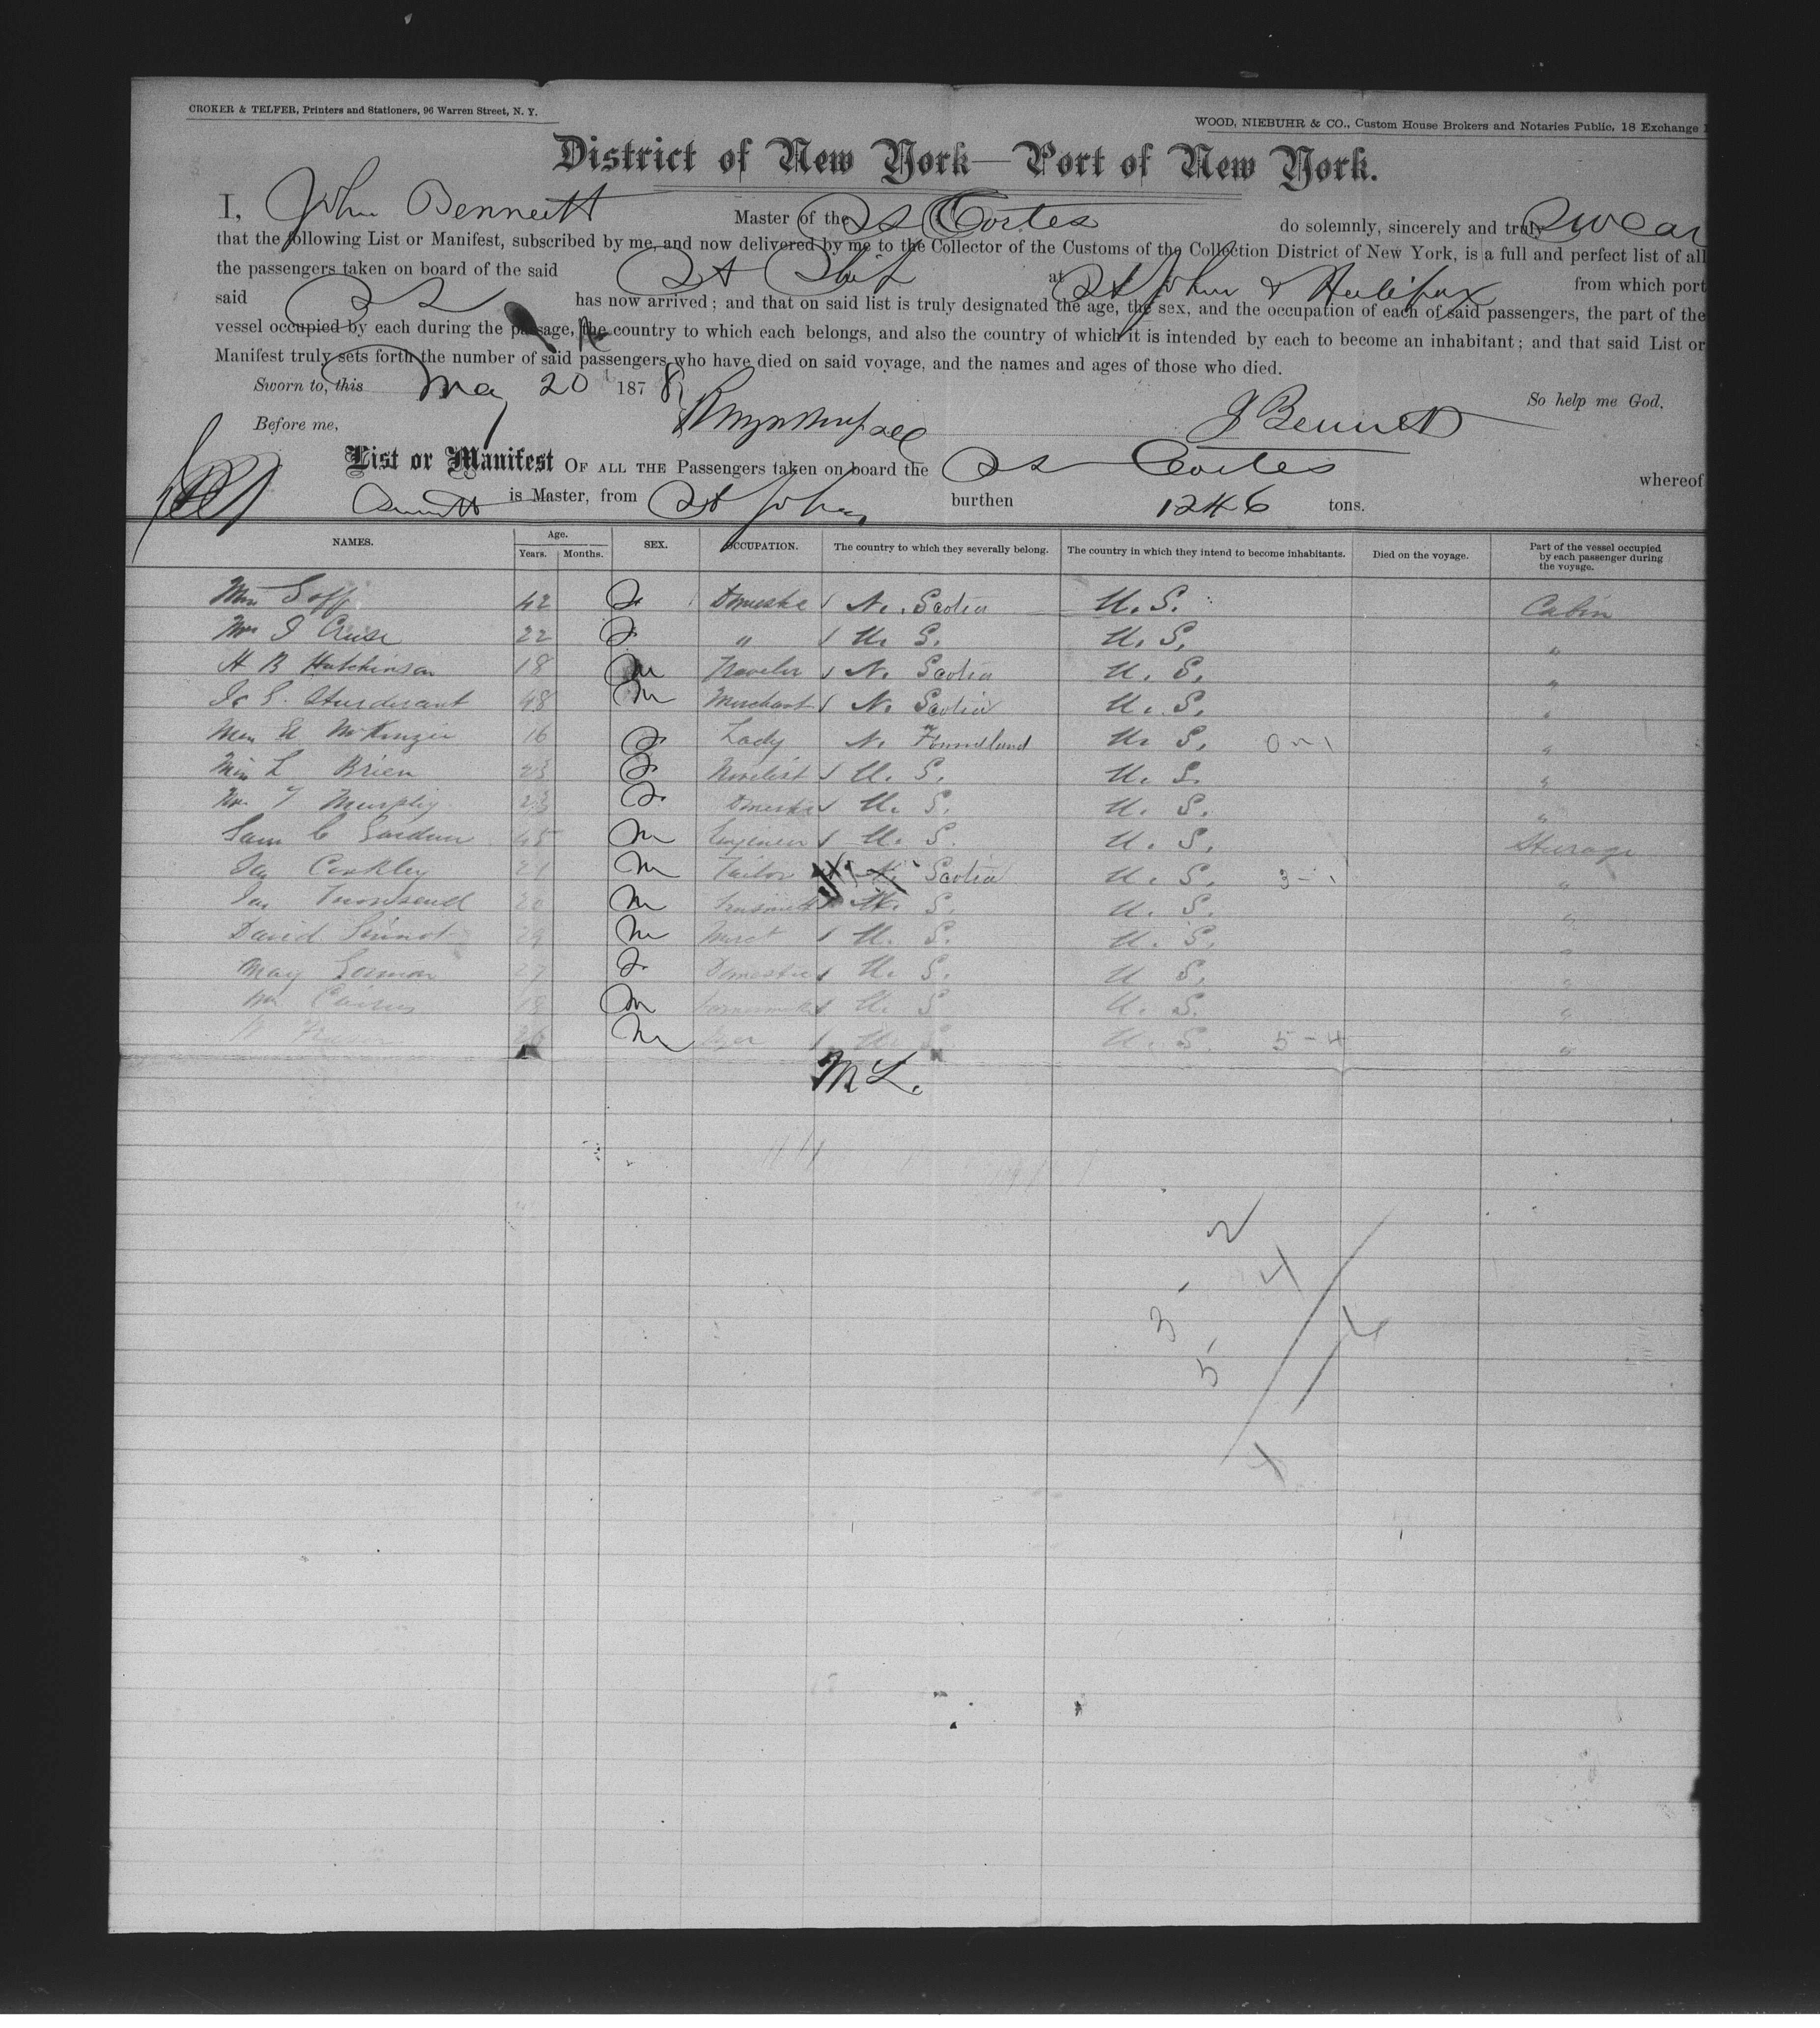 CROKER & TELFER, Printers and Stationers, 96 Warren Street, N. Y.
WOOD, NIEBUHR & CO., Custom House Brokers and Notaries Public, 18 Exchange
District of New York—Port of New York.
I, John Bennett Master of the SS Cortes do solemnly, sincerely and truly Swear
that the following List or Manifest, subscribed by me, and now delivered by me to the Collector of the Customs of the Collection District of New York, is a full and perfect list of all
the passengers taken on board of the said St Ship at St Johns & Halifax from which port
said SS has now arrived; and that on said list is truly designated the age, the sex, and the occupation of each of said passengers, the part of the
vessel occupied by each during the passage, the country to which each belongs, and also the country of which it is intended by each to become an inhabitant; and that said List or
Manifest truly sets forth the number of said passengers who have died on said voyage, and the names and ages of those who died.
Sworn to, this May 20 1878 So help me God,
Before me, J Bennett
List or Manifest OF ALL THE Passengers taken on board the SS Cortes whereof
Bennett is Master, from St Johns burthen 1246 tons.
NAMES. Age. Years. Months. SEX. OCCUPATION. The country to which they severally belong. The country in which they intend to become inhabitants. Died on the voyage. Part of the vessel occupied by each passenger during the voyage.
42 F Domestic N. Scotia U. S. Cabin
Mrs J Cruse 22 F " U. S. U. S. "
H B Hutchinson 18 M Traveler N. Scotia U. S. "
S. Sturdevant 48 M Merchant N. Scotia U. S. "
McKenzie 16 F Lady N. Foundland U. S. 0-1 "
Miss L Brien 23 F Novelist U. S. U. S. "
T Murphy 23 F Domestic U. S. U. S. "
Sam C Gardner 45 M Engineer U. S. U. S. Sturage
Coakley 21 M Tailor N. Scotia U. S. 3-1 "
Townsend 20 M U. S. U. S. "
David Sinnot 29 M Merct U. S. U. S. "
May 27 F Domestic U. S. U. S. "
Wm Cairns 18 M U. S. U. S. "
M U. S. U. S. 5-4 "
M L.
2
4
3
5
4